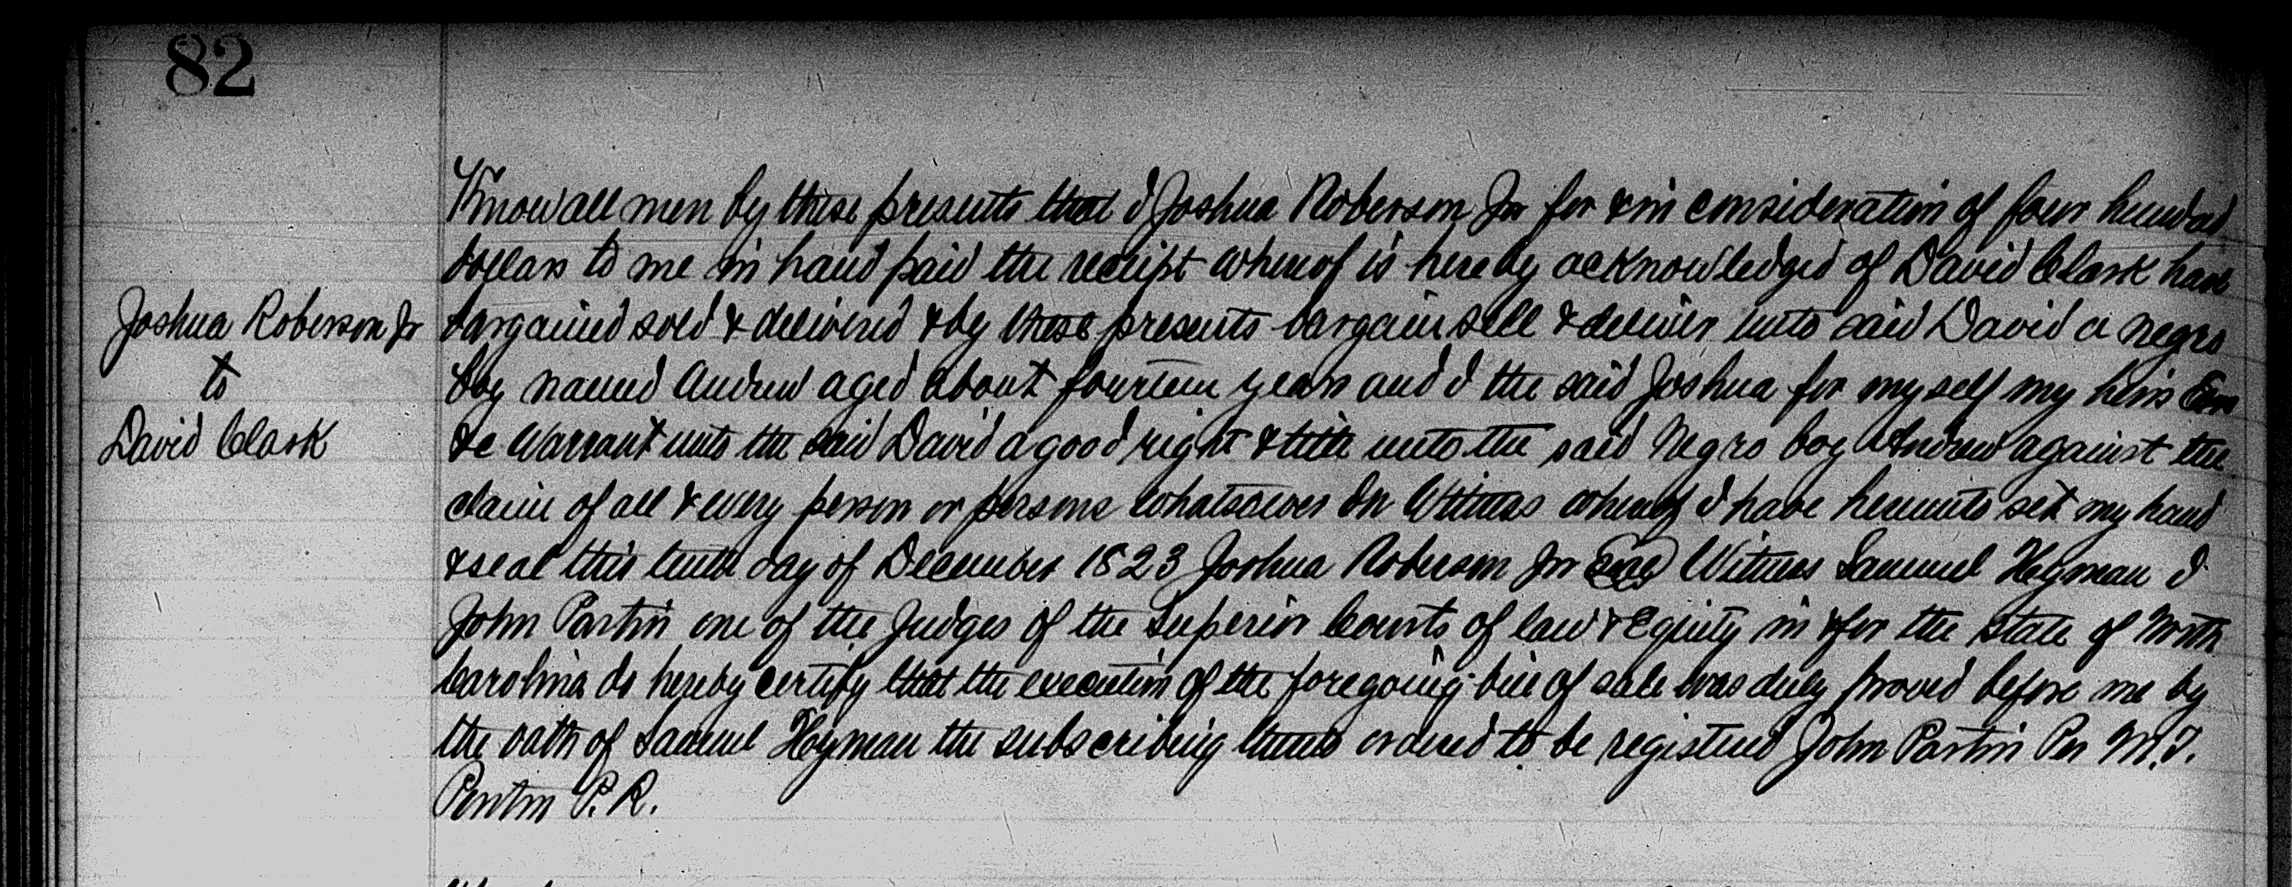 82
Know all men by these presents that I Joshua Roberson Jr for & in consideration of four hundred
dollars to me in hand paid the receipt whereof is hereby acknowledged of David Clark have
Joshua Roberson Jr
to
David Clark
bargained sold & delivered & by these presents bargain sell & deliver unto said David a negro
boy named Andrew aged about fourteen years and I the said Joshua for myself my heirs Exrs
&c Warrant unto the said David a good right & title unto the said Negro boy Andrew against the
claim of all & every person or persons whatsoever In Witness whereof I have hereunto set my hand
& seal this tenth day of December 1823 Joshua Roberson Jr Seal Witness Samuel Hyman I
John Partin one of the Judges of the Superior Courts of law & Equity in & for the State of North
Carolina do hereby certify that the execution of the foregoing bill of sale was duly proved before me by
the oath of Samuel Hyman the subscribing ordered to be registered John Partin Per M.T.
P.R.